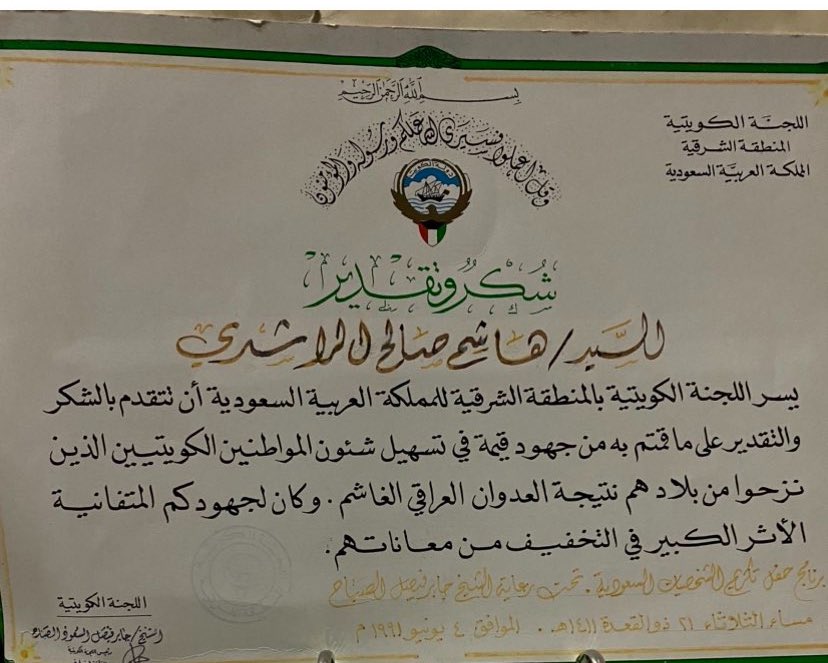 بسم الله الرحمن الرحيم
اللجنة الكويتية
المنطقة الشرقية
المملكة العربية السعودية
وقل اعملوا فسيرى الله عملكم ورسوله والمؤمنون
دولة الكويت
شكر وتقدير
للسيد / هاشم صالح الراشدي
يسر اللجنة الكويتية بالمنطقة الشرقية للمملكة العربية السعودية أن تتقدم بالشكر
والتقدير على ما قمتم به من جهود قيمة في تسهيل شئون المواطنين الكويتيين الذين
نزحوا من بلادهم نتيجة العدوان العراقي الغاشم . وكان لجهودكم المتفانية
الأثر الكبير في التخفيف من معاناتهم .
برنامج حفل تكريم الشخصيات السعودية . تحت رعاية الشيخ جابر فيصل الصباح
مساء الثلاثاء ٢١ ذو القعدة ١٤١١هـ . الموافق ٤ يونيو ١٩٩١ م
اللجنة الكويتية
الشيخ / جابر فيصل السعود الصباح